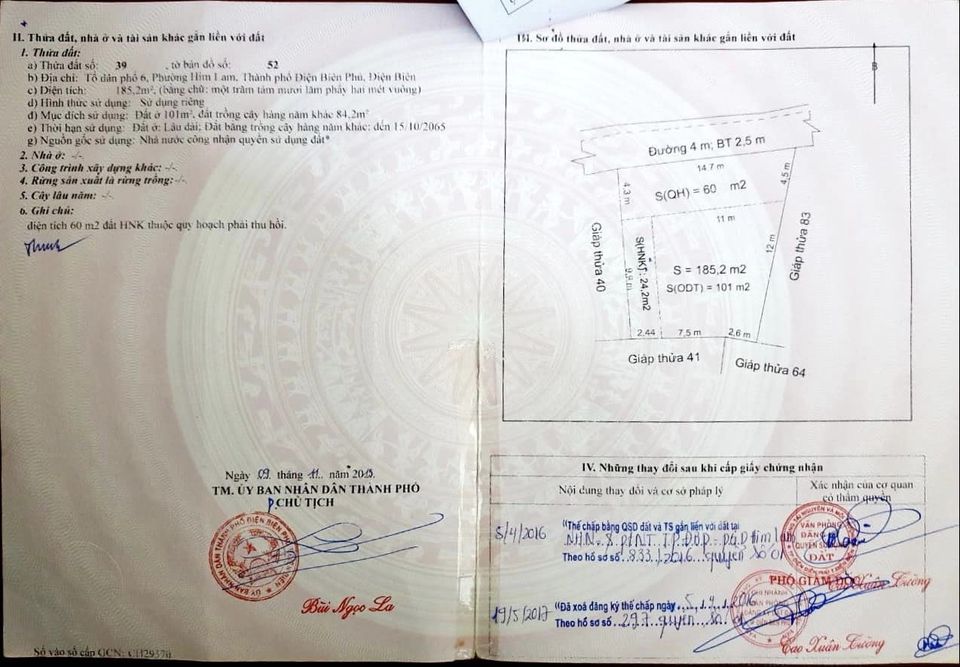 II. Thửa đất, nhà ở và tài sản khác gắn liền với đất
1. Thửa đất:
a) Thửa đất số: 39 , tờ bản đồ số: 52
b) Địa chỉ: Tổ dân phố 6, Phường Him Lam, Thành phố Điện Biên Phủ, Điện Biên
c) Diện tích: 185,2m², (bằng chữ: một trăm tám mươi lăm phẩy hai mét vuông)
d) Hình thức sử dụng: Sử dụng riêng
đ) Mục đích sử dụng: Đất ở 101m², đất trồng cây hàng năm khác 84,2m²
e) Thời hạn sử dụng: Đất ở: Lâu dài; Đất bằng trồng cây hàng năm khác: đến 15/10/2065
g) Nguồn gốc sử dụng: Nhà nước công nhận quyền sử dụng đất*
2. Nhà ở: -/-
3. Công trình xây dựng khác: -/-
4. Rừng sản xuất là rừng trồng: -/-
5. Cây lâu năm: -/-
6. Ghi chú:
diện tích 60 m2 đất HNK thuộc quy hoạch phải thu hồi.
Ngày 09 tháng 11 năm 2015
TM. ỦY BAN NHÂN DÂN THÀNH PHỐ
P.CHỦ TỊCH
Bùi Ngọc La
Số vào sổ cấp GCN: CH29370
III. Sơ đồ thửa đất, nhà ở và tài sản khác gắn liền với đất
B
Đường 4 m; BT 2,5 m
14,7 m
4,3 m
S(QH) = 60 m2
4,5 m
11 m
Giáp thửa 40
S(HNK): 24,2m2
9,9 m
S = 185,2 m2
S(ODT) = 101 m2
12 m
Giáp thửa 83
2,44
7,5 m
2,6 m
Giáp thửa 41
Giáp thửa 64
IV. Những thay đổi sau khi cấp giấy chứng nhận
Nội dung thay đổi và cơ sở pháp lý
Xác nhận của cơ quan có thẩm quyền
5/4/2016
"Thế chấp bằng QSD đất và TS gắn liền với đất tại
NHN & PTNT TP ĐBP - PGD Him Lam
Theo hồ sơ số 833/2016 quyển số 01
VĂN PHÒNG
ĐĂNG
QUYỀN SỬ
ĐẤT
PHÓ GIÁM ĐỐC
Cao Xuân Trường
19/5/2017
"Đã xoá đăng ký thế chấp ngày 5/4/2016
Theo hồ sơ số 297 quyển số 01
CHI NHÁNH
VĂN PHÒNG
Cao Xuân Trường